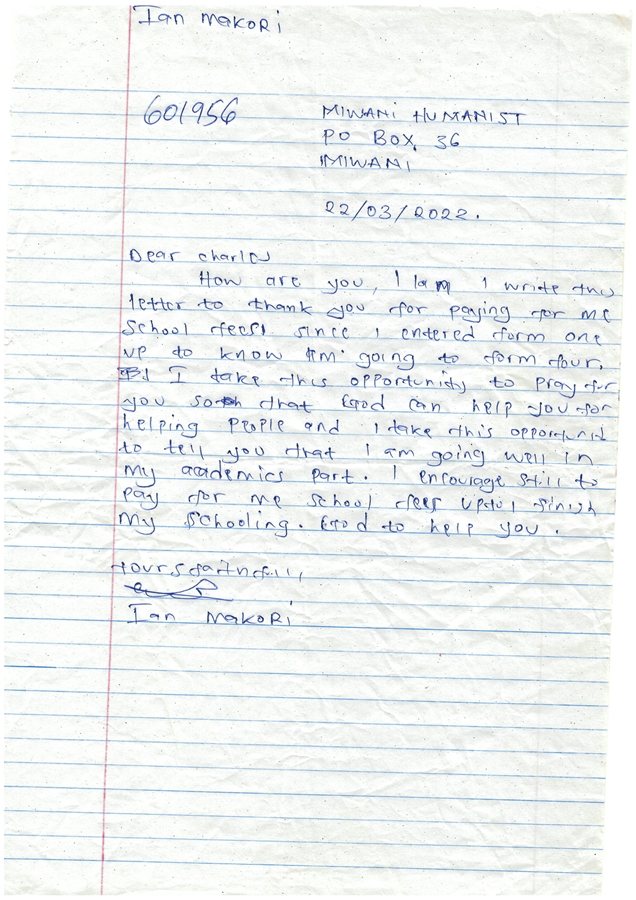 Ian Makori
601956
MIWANI HUMANIST
PO BOX 36
MIWANI
22/03/2022.
Dear Charles
How are you, I I write this
letter to thank you for paying for me
School fees, since I entered form one
up to know going to form four.
I take this opportunity to pray for
you that God can help you for
helping people and I take this opportunit
to tell you that I am going well in
my academics part. I encourage still to
pay for me school fees upto I finish
my schooling. God to help you.
Ian Makori